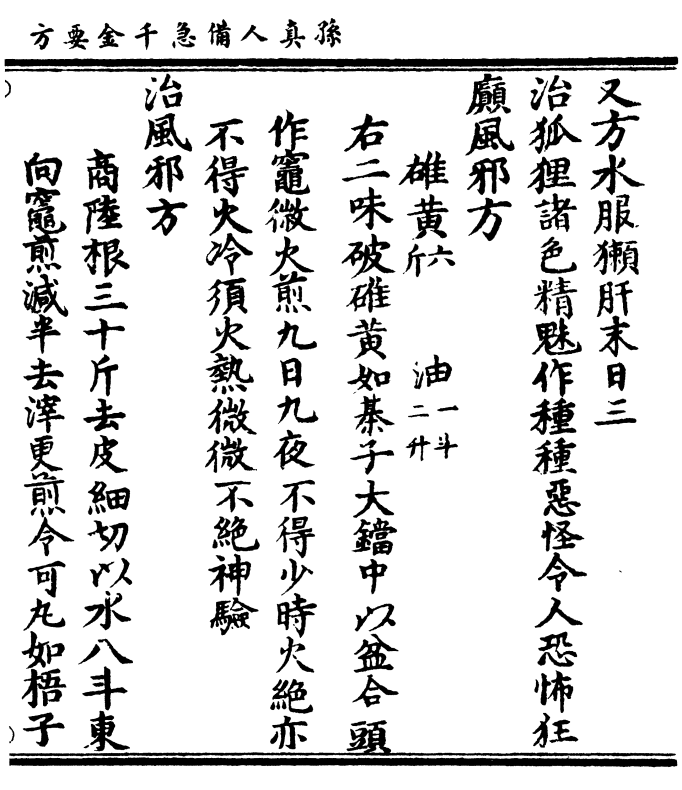 孫真人備急千金要方
又方水服獺肝末日三
治狐狸諸色精魅作種種惡怪令人恐怖狂
癲風邪方
雄黄六斤　油一斗二升
右二味破雄黄如棊子大鐺中以盆合頭
作竈微火煎九日九夜不得少時火絶亦
不得火冷須火熱微微不絶神驗
治風邪方
商陸根三十斤去皮細切以水八斗東
向竈煎減半去滓更煎令可丸如梧子